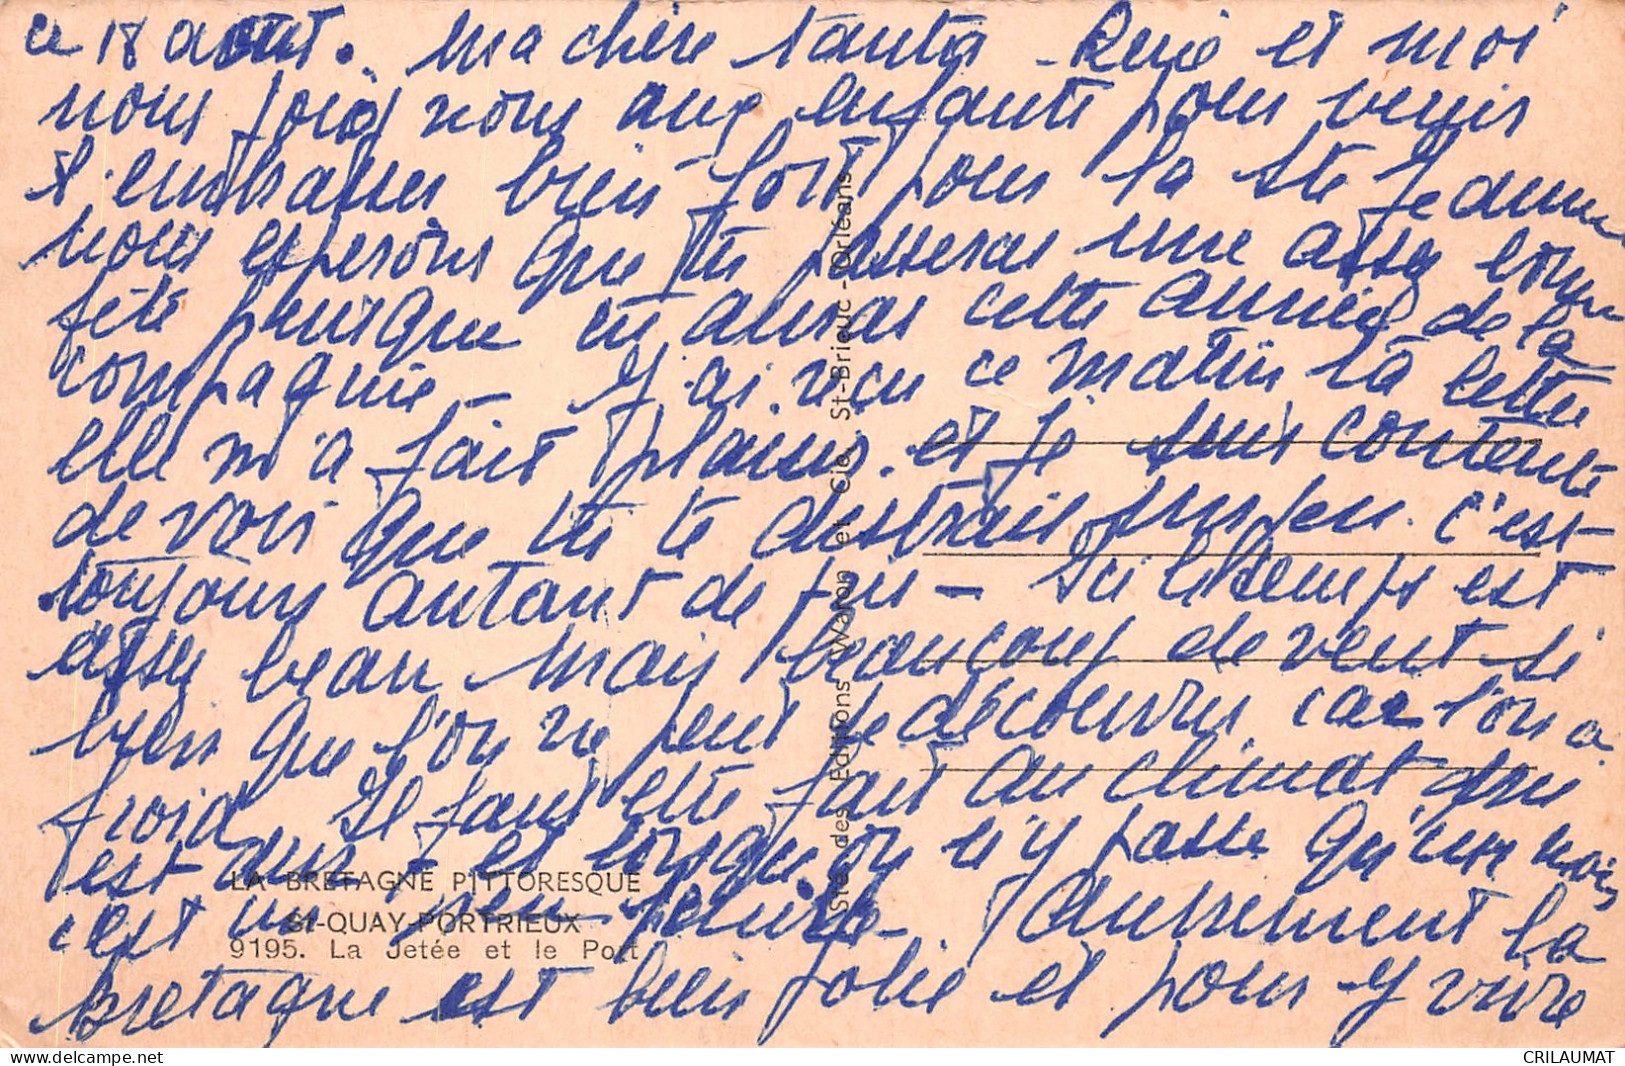 ce 18 aout. Ma chère tanta - René et moi
nous joid nous aux enfants pour venir
t'embrasser bien fort pour la Ste
nous esperons que tu passeras une assez bonne
fête puisque tu auras cette année de la
compagnie - J'ai reçu ce matin ta lettre
elle m'a fait plaisir. et je suis contente
de voir que tu te distrais un peu. c'est
toujours autant de pris - Ici le temps est
assez beau mais beaucoup de vent si
bien que l'on ne peut se découvrir car l'on a
froid. Il faut etre fait au climat qui
est dur - et lorsque on n'y passe qu'un mois
c'est un peu - Autrement la
Bretagne est bien jolie et pour y vivre
LA BRETAGNE PITTORESQUE
St-QUAY-PORTRIEUX
9195. La Jetée et le Port
Sté des Editions Waron et Cie St-Brieuc - Orléans
CRILAUMAT
www.delcampe.net